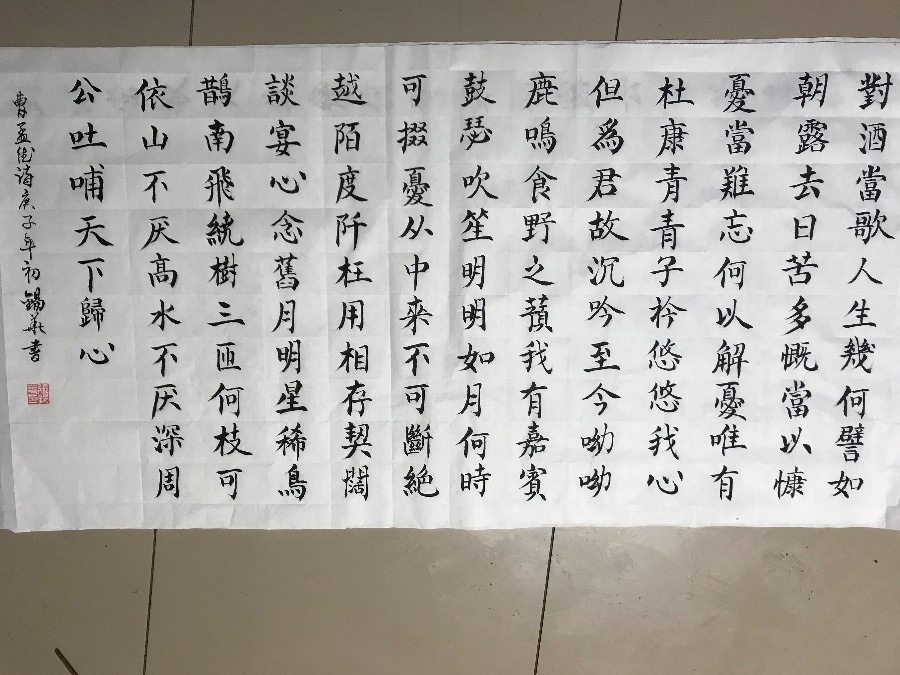 對酒當歌人生幾何譬如
朝露去日苦多慨當以慷
憂當難忘何以解憂唯有
杜康青青子衿悠悠我心
但爲君故沉吟至今呦呦
鹿鳴食野之蘋我有嘉賓
鼓瑟吹笙明明如月何時
可掇憂从中来不可斷絕
越陌度阡枉用相存契闊
談宴心念舊月明星稀鳥
鵲南飛繞樹三匝何枝可
依山不厌高水不厌深周
公吐哺天下歸心
曹孟德詩庚子年初錫華書